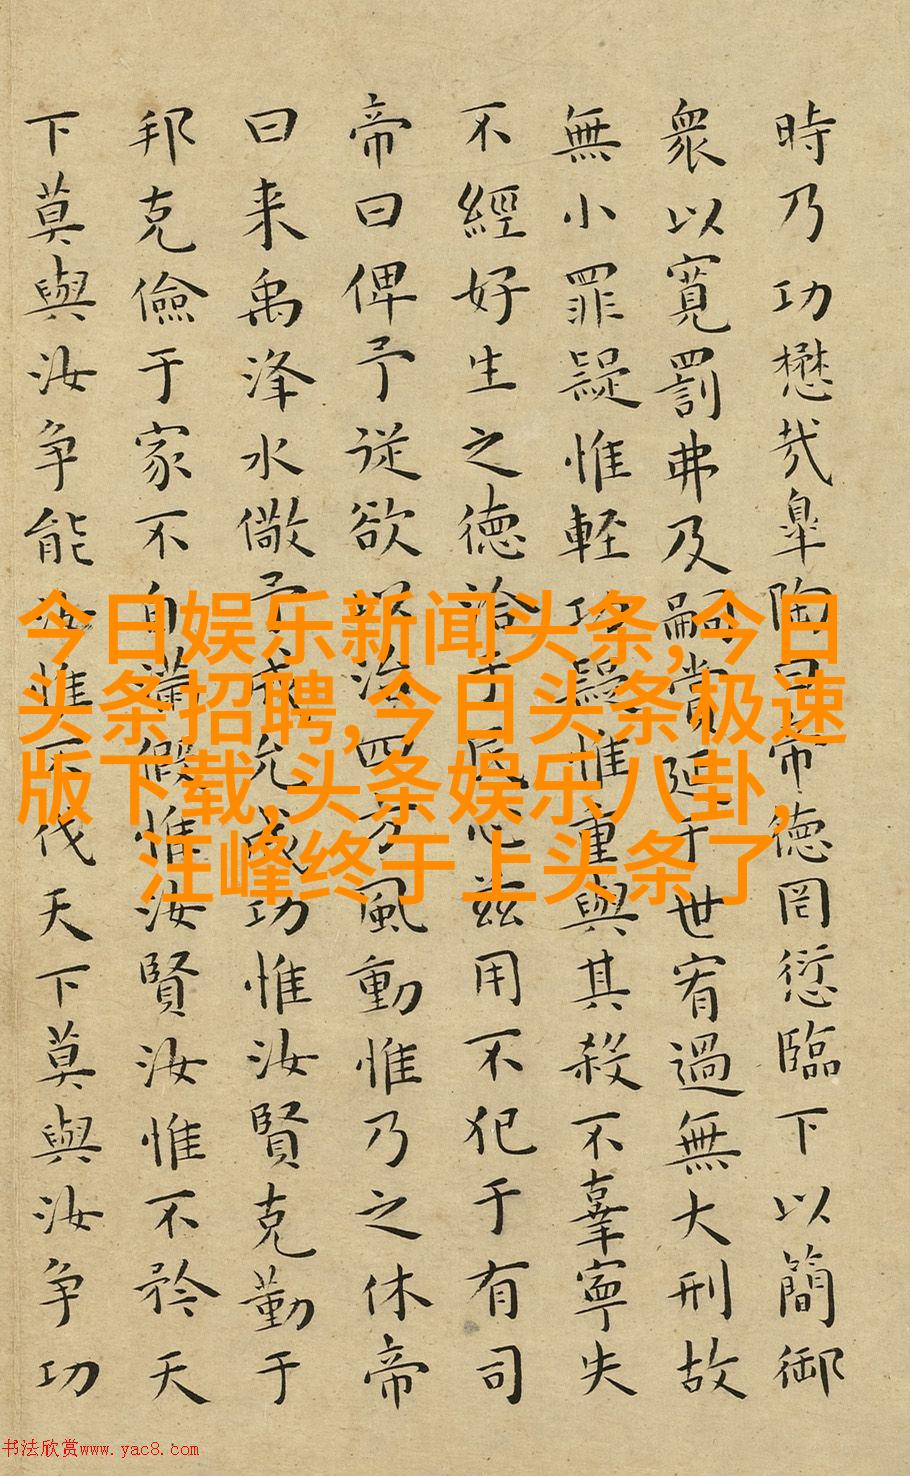 時乃功懋哉皐陶曰帝德罔愆臨下以簡御
衆以寬罰弗及嗣賞延于世宥過無大刑故
無小罪疑惟輕功疑惟重與其殺不辜寧失
不經好生之德洽于民心兹用不犯于有司
帝曰俾予従欲以治四方風動惟乃之休帝
曰来禹洚水儆予成允成功惟汝賢克勤于
邦克儉于家不自滿假惟汝賢汝惟不矜天
下莫與汝争能汝惟不伐天下莫與汝争功
今日娱乐新闻头条,今日
头条招聘,今日头条极速
版下载,头条娱乐八卦,
汪峰终于上头条了
书法欣赏www.yac8.com